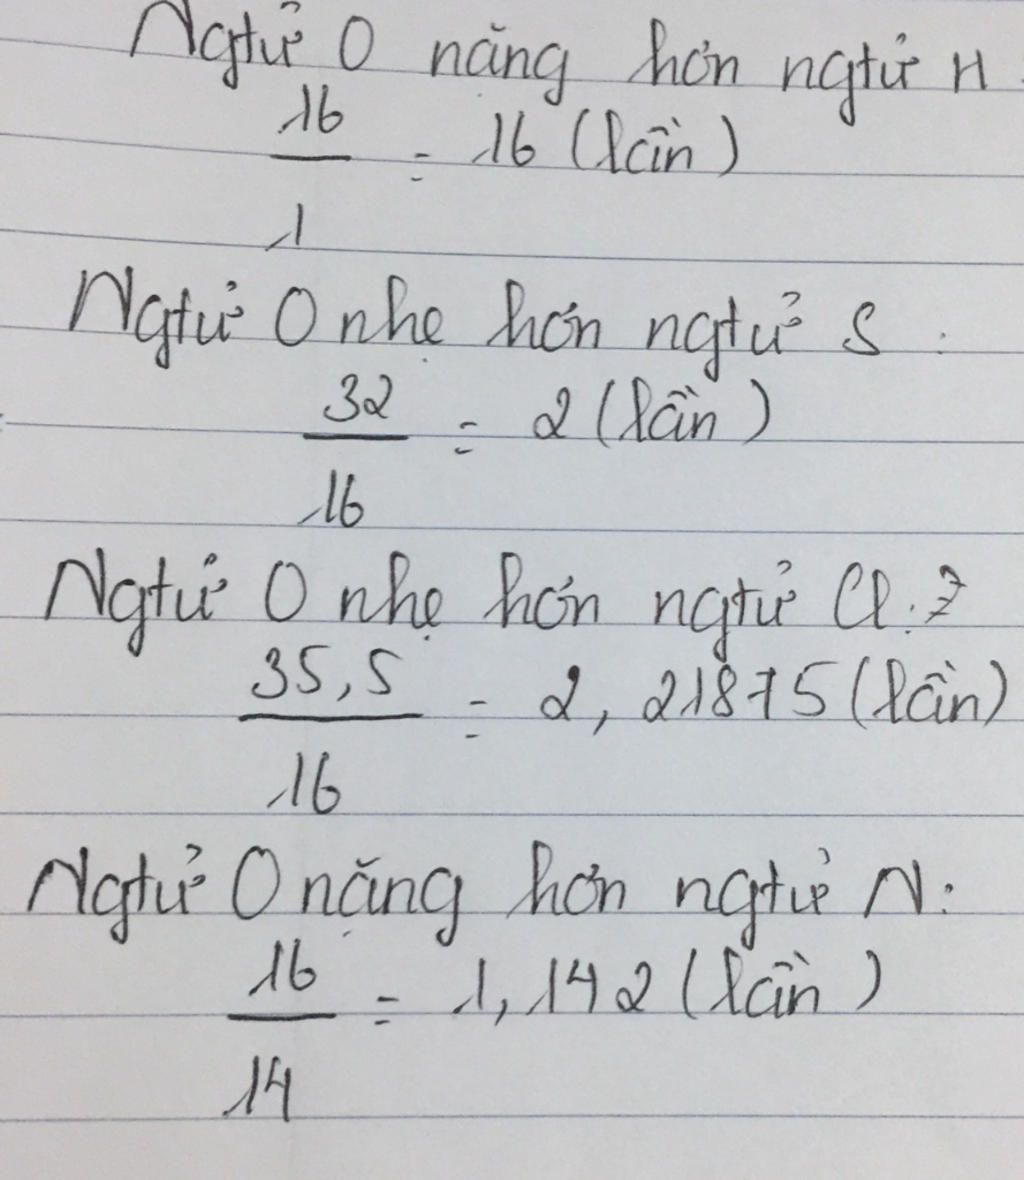 Ngtử O nặng hơn ngtử H:
16
/
1
= 16 (lần)
Ngtử O nhẹ hơn ngtử S:
32
/
16
= 2 (lần)
Ngtử O nhẹ hơn ngtử Cl:
35,5
/
16
= 2,21875 (lần)
Ngtử O nặng hơn ngtử N:
16
/
14
= 1,142 (lần)